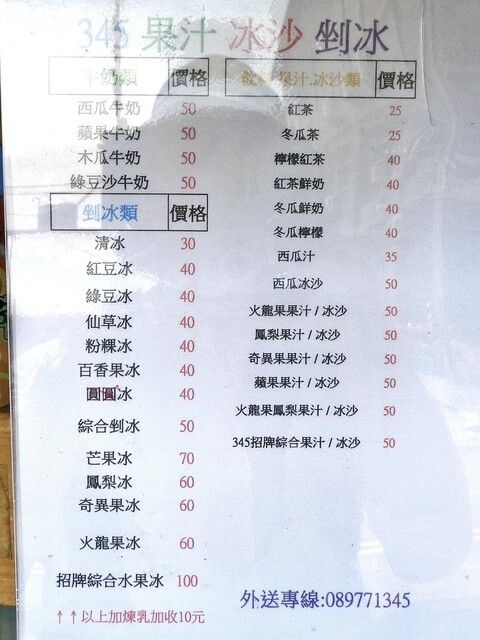 345 果汁 冰沙 剉冰
牛奶類 價格
西瓜牛奶 50
蘋果牛奶 50
木瓜牛奶 50
綠豆沙牛奶 50
剉冰類 價格
清冰 30
紅豆冰 40
綠豆冰 40
仙草冰 40
粉粿冰 40
百香果冰 40
圓圓冰 40
綜合剉冰 50
芒果冰 70
鳳梨冰 60
奇異果冰 60
火龍果冰 60
招牌綜合水果冰 100
↑↑以上加煉乳加收10元
飲料.果汁.冰沙類 價格
紅茶 25
冬瓜茶 25
檸檬紅茶 40
紅茶鮮奶 40
冬瓜鮮奶 40
冬瓜檸檬 40
西瓜汁 35
西瓜冰沙 50
火龍果果汁 / 冰沙 50
鳳梨果汁 / 冰沙 50
奇異果果汁 / 冰沙 50
蘋果果汁 / 冰沙 50
火龍果鳳梨果汁 / 冰沙 50
345招牌綜合果汁 / 冰沙 50
外送專線:089771345